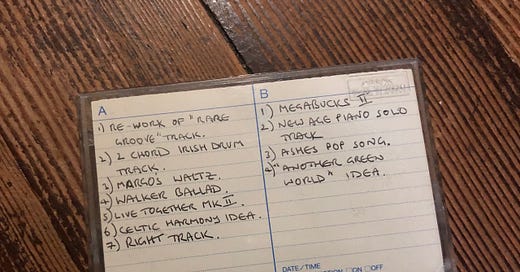 A
1) RE-WORK OF "RARE
GROOVE" TRACK.
2) 2 CHORD IRISH DRUM
TRACK.
3) MARGO'S WALTZ.
4) WALKER BALLAD.
5) LIVE TOGETHER MK II.
6) CELTIC HARMONY IDEA.
7) RIGHT TRACK.
B
1) MEGABUCKS II
2) NEW AGE PIANO SOLO
TRACK
3) ASHES POP SONG.
4) "ANOTHER GREEN
WORLD" IDEA.
DATE/TIME
ON OFF